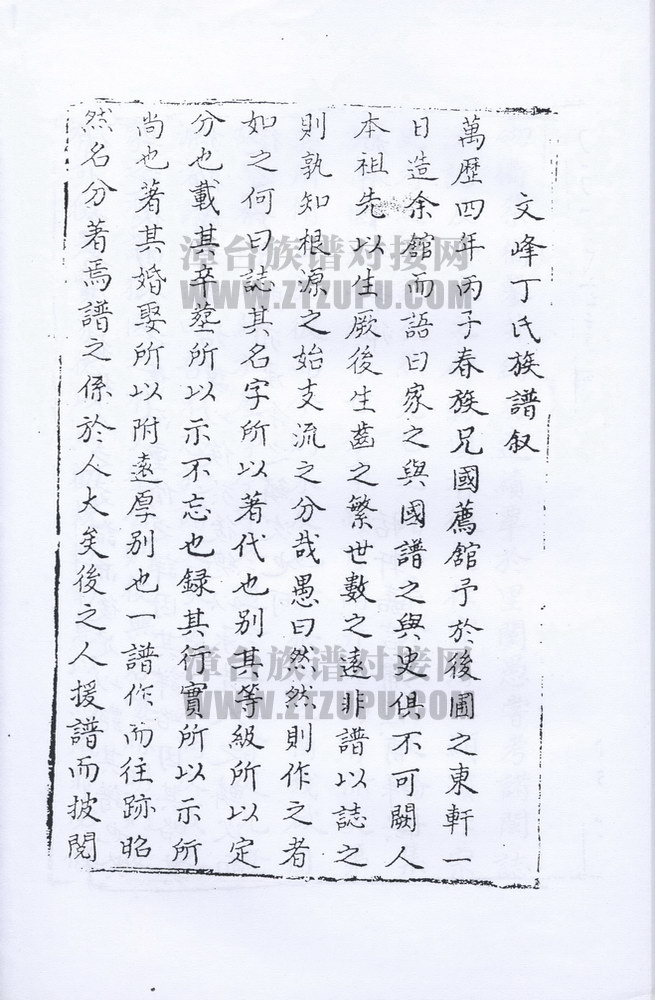 文峰丁氏族譜叙
萬歷四年丙子春族兄國薦舘予於後圃之東軒一
日造余舘而語曰家之與國譜之與史俱不可闕人
本祖先以生厥後生齒之繁世數之遠非譜以誌之
則孰知根源之始支流之分哉愚曰然然則作之者
如之何曰誌其名字所以著代也別其等級所以定
分也載其卒塟所以示不忘也録其行實所以示所
尚也著其婚娶所以附遠厚別也一譜作而往跡昭
然名分著焉譜之係於人大矣後之人援譜而披閱
漳台族谱对接网
WWW.ZTZUPU.COM
漳台族谱对接网
WWW.ZTZUPU.COM